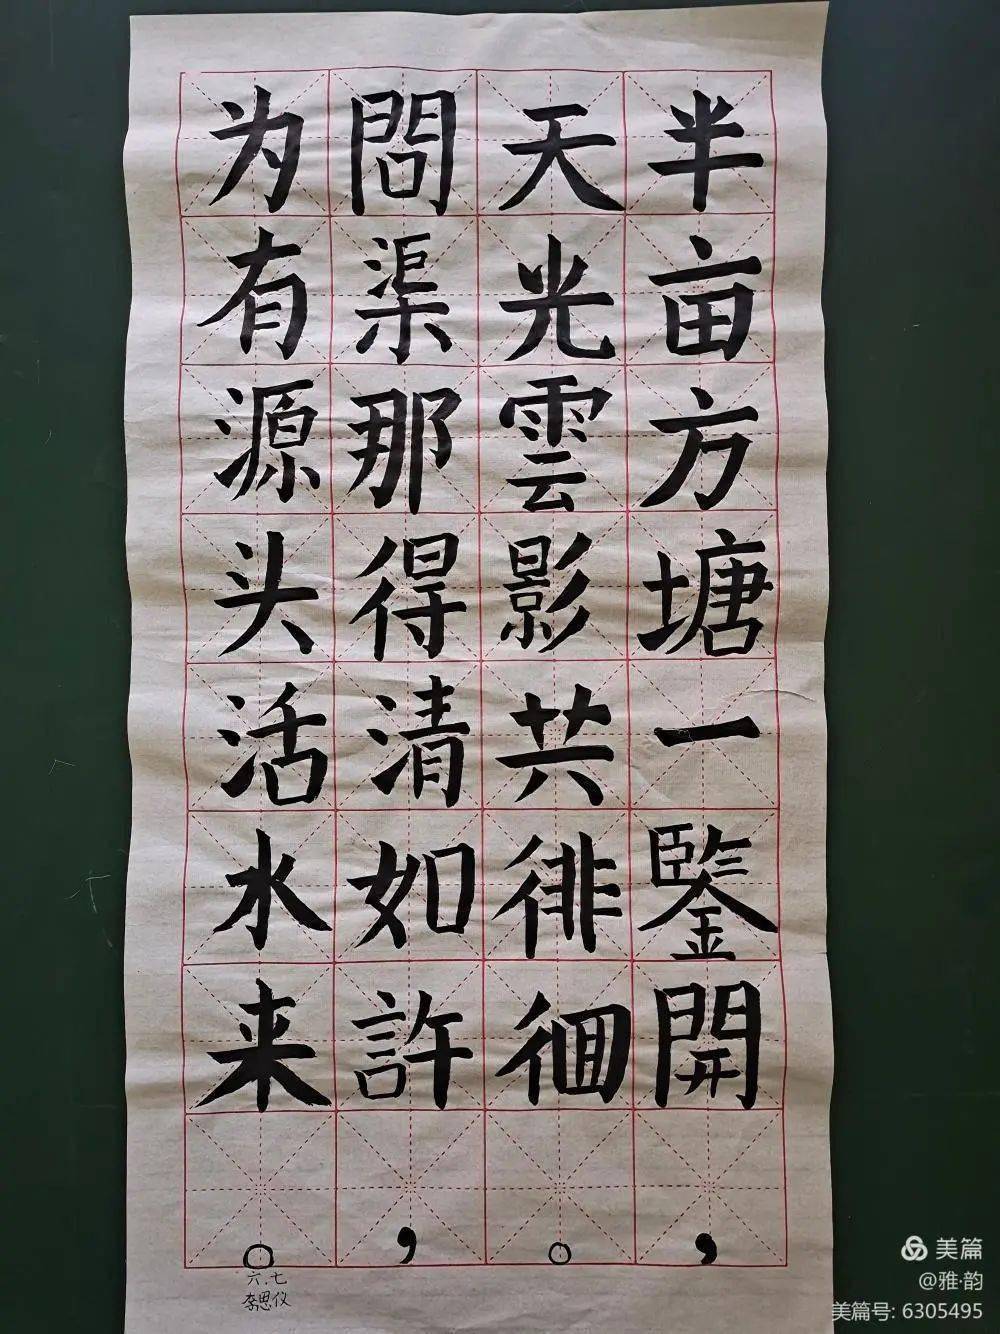 半亩方塘一鑒開，
天光雲影共徘徊。
問渠那得清如許，
为有源头活水来。
六.七
李思仪
美篇
@雅·韵
美篇号: 6305495